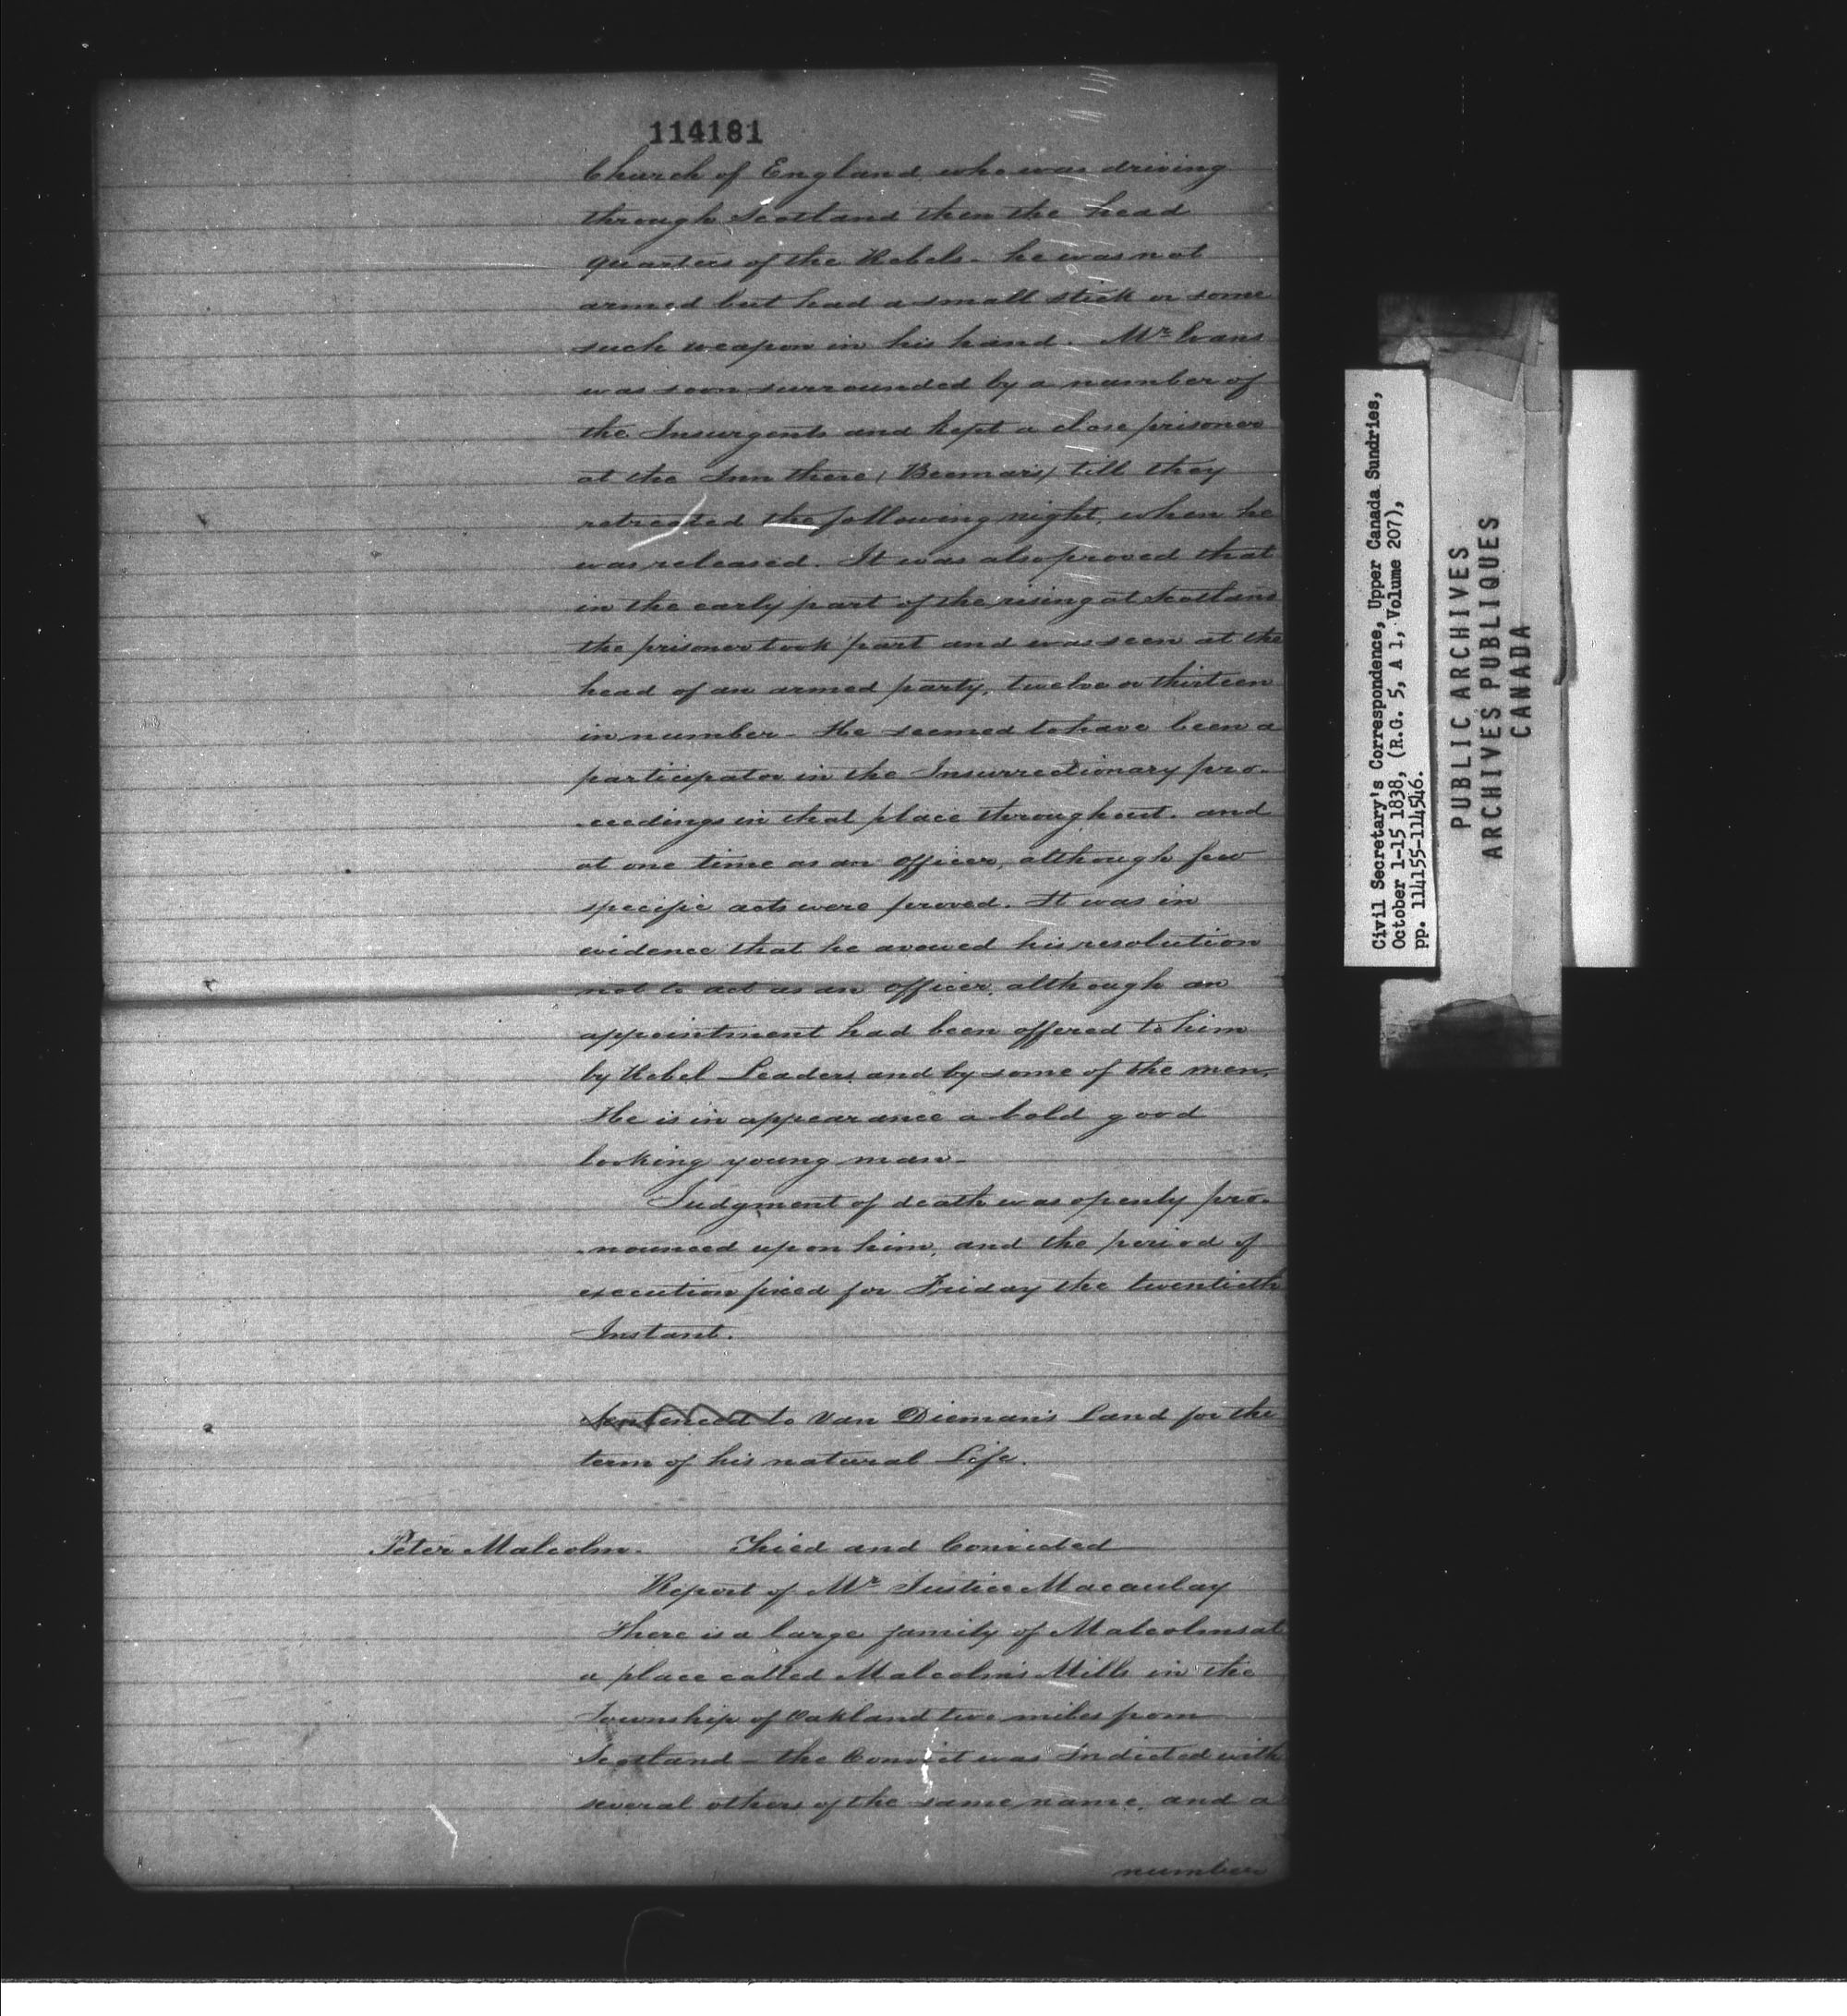 114181
Church of England who was driving
through Scotland then the head
quarters of the Rebels. he was not
armed but had a small stick or some
such weapon in his hand. Mr. Evans
was soon surrounded by a number of
the Insurgents and kept a close prisoner
at the Inn there (Beemars) till they
retreated the following night, when he
was released. It was also proved that
in the early part of the rising at Scotland
the prisoner took part and was seen at the
head of an armed party, twelve or thirteen
in number. He seemed to have been a
participator in the Insurrectionary pro-
-ceedings in that place throughout. and
at one time as an officer, although few
specific acts were proved. It was in
evidence that he avowed his resolution
not to act as an officer, although an
appointment had been offered to him
by Rebel Leaders and by some of the men.
He is in appearance a bold good
looking young man.
Judgment of death was openly pro-
-nounced upon him, and the period of
execution fixed for Friday the twentieth
Instant.
Sentenced to Van Dieman's Land for the
term of his natural Life.
Peter Malcolm. Tried and Convicted
Report of Mr. Justice Macaulay
There is a large family of Malcolms at
a place called Malcolm's Mills in the
Township of Oakland two miles from
Scotland - the Convict was Indicted with
several others of the same name, and a
number
Civil Secretary's Correspondence, Upper Canada Sundries,
October 1-15 1838, (R.G. 5, A 1, Volume 207),
pp. 114155-114546.
PUBLIC ARCHIVES
ARCHIVES PUBLIQUES
CANADA